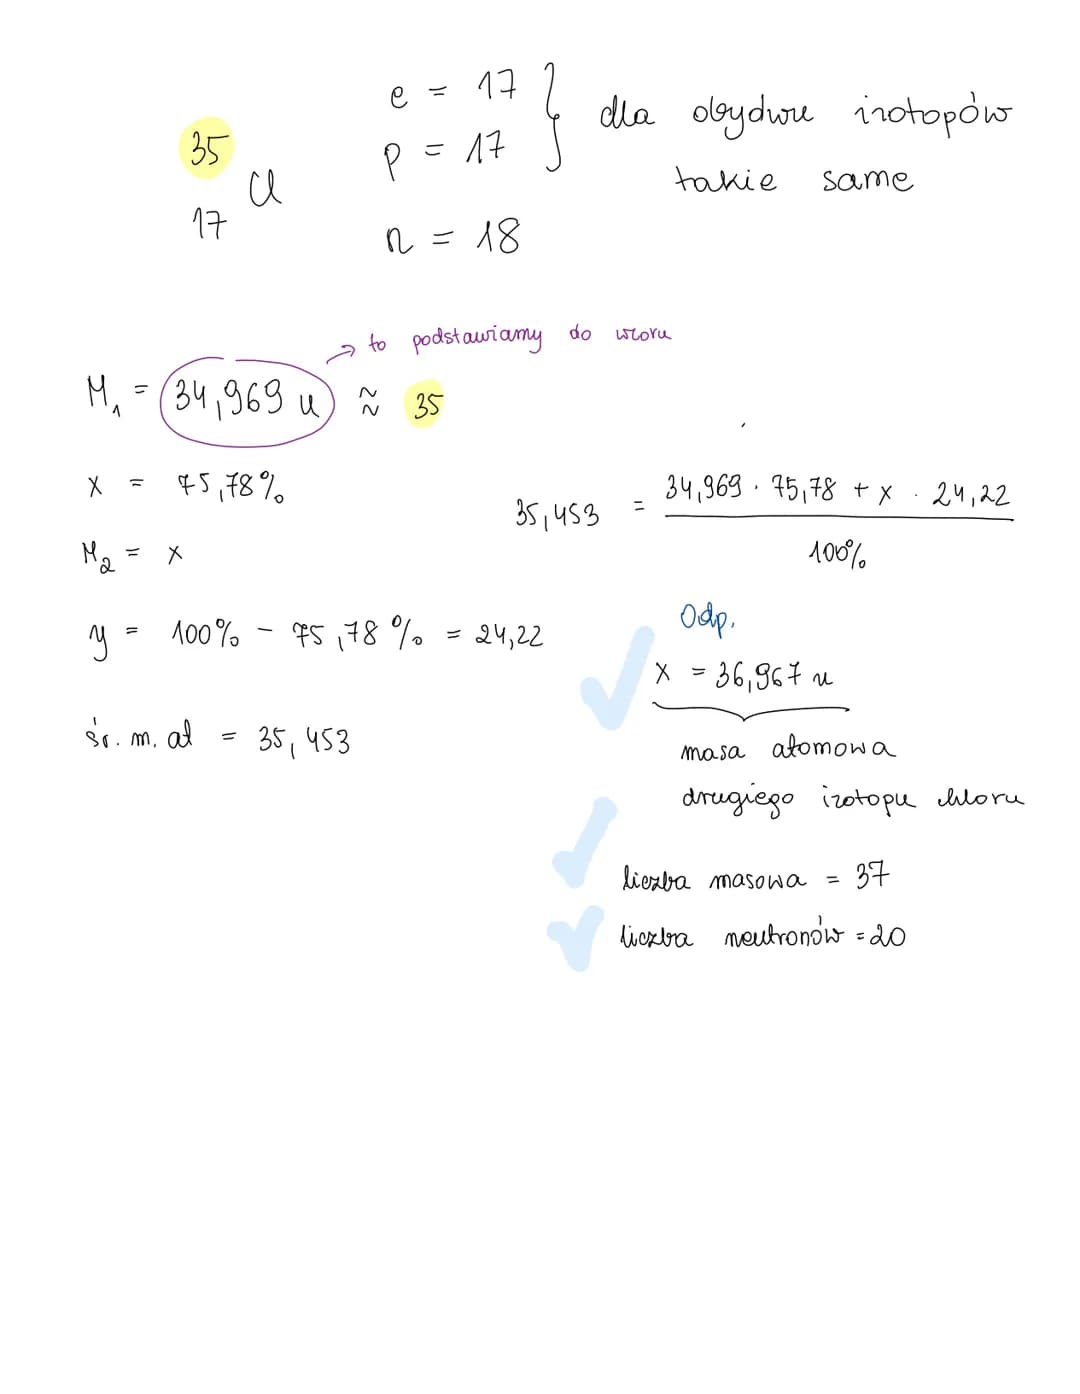 35
17 Cl
e = 17
p = 17
n = 18
dla obydwu izotopów
takie same
→ to podstawiamy do wzoru
M₁ = 34,969 u ≈ 35
x = 75,78%
M₂ = x
y = 100% - 75,78% = 24,22
śr. m. at = 35,453
35,453 = 34,969 · 75,78 + x · 24,22
100%
Odp.
x = 36,967 u
masa atomowa
drugiego izotopu chloru
liczba masowa = 37
liczba neutronów = 20